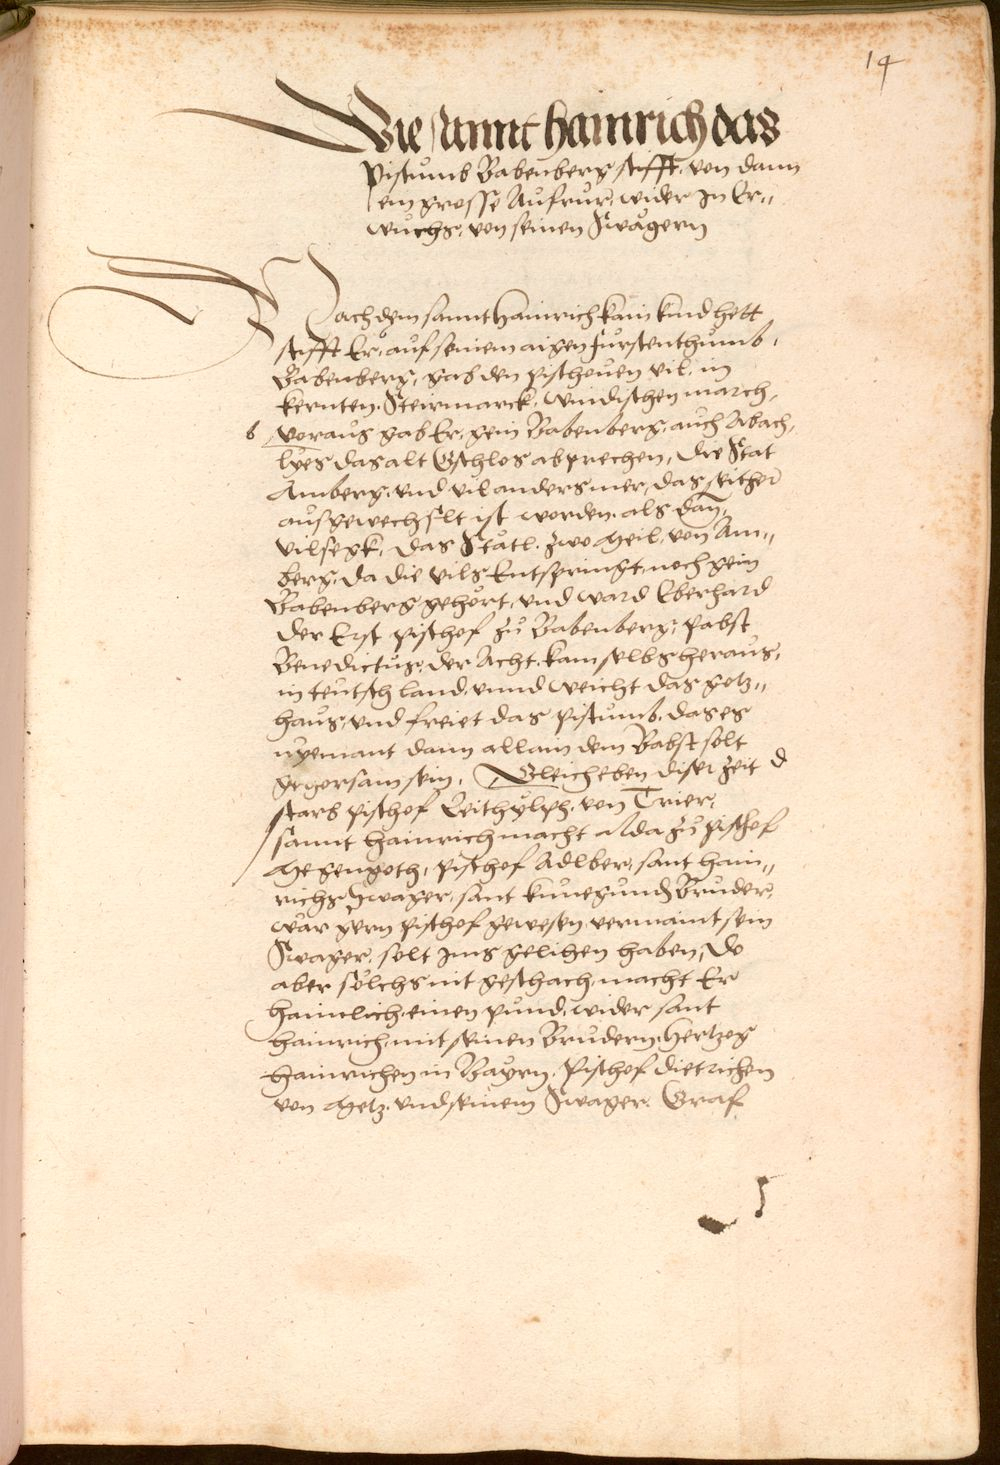 14
Wie sannt hainrich das
Pistumb Babenberg stifft, von dann
ein grosse Aufrur, wider Jn Er„
wuchs, von seinen Swägern
Nachdem sannt Hainrich kain kind hett
stifft Er, auf seinem aigen furstenthumb,
Babenberg, gab den Pischouen vil, in
kernten, Steirmarck, Windischen march,
b voraus gab Er, gein Babenberg, auch Abach,
lyes das alt Gschlos abprechen, Die Stat
Amberg, vnd vil anders mer, das seither
ausgewechslt ist worden, als dan,
Vilsegk, das Stätl, zwo Meil, von Am„
berg, da die Vils Entspringt, noch gein
Babenberg gehört, vnd ward Eberhard
der Erst Pischof zu Babenberg, Pabst
Benedictus, der Acht, kam selbs heraus,
in teutsch land, vnnd weicht das gotz„
haus, vnd freiet das Pistumb, das es
nyemant dann allain dem Babst solt
gehorsam sein, Gleich eben diser zeit d
starb Pischof von Trier,
sannt Hainrich macht alda zu Pischof
Megengoth, Pischof Adlber, sant Hain„
richs Swager, sant kunegundt Bruder,
wär gern Pischof gewesen, vermaint sein
Swager, solt Jms gelihen haben, Do
aber sölchs nit geschach, macht Er
haimlich, einen pund, wider sant
Hainrich, mit seinen Brudern, Hertzog
Hainrichen in Bayrn, Pischof dietrichen
von Metz, vnd seinem Swager, Graf